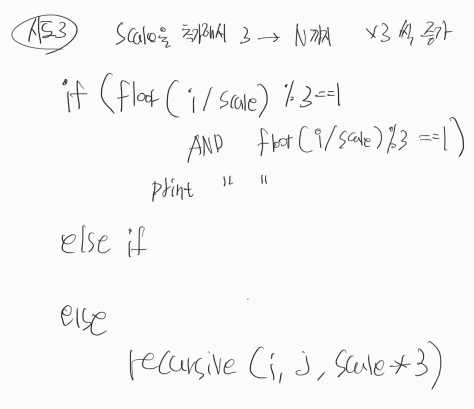 시도3 Scale을 추가해서 3 → N까지 ×3 씩 증가
if (floor(i/scale) %3==1
AND floor(i/scale)%3 ==1)
print " "
else if
else
recursive (i, j, scale*3)